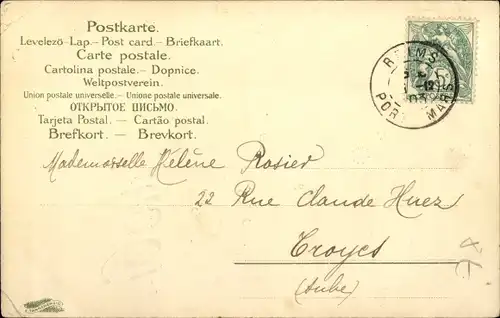 Postkarte.
Levelezö-Lap. – Post card. – Briefkaart.
Carte postale.
Cartolina postale. – Dopnice.
Weltpostverein.
Union postale universelle. – Unione postale universale.
ОТКРЫТОЕ ПИСЬМО.
Tarjeta Postal. – Cartão postal.
Brefkort. – Brevkort.
REIMS
PORTE MARS
Mademoiselle Hélène Rosier
22 Rue Claude Huez
Troyes
(Aube)